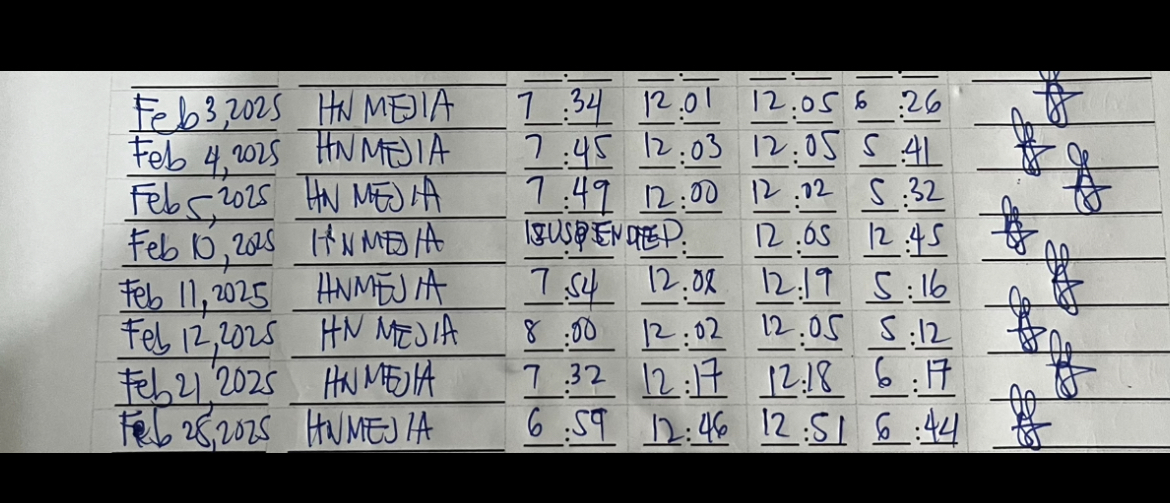 Feb 3, 2025 HN MEJIA 7:34 12:01 12:05 6:26
Feb 4, 2025 HN MEJIA 7:45 12:03 12:05 5:41
Feb 5, 2025 HN MEJIA 7:49 12:00 12:02 5:32
Feb 10, 2025 HN MEJIA SUSPENDED 12:05 12:45
Feb 11, 2025 HN MEJIA 7:54 12:08 12:19 5:16
Feb 12, 2025 HN MEJIA 8:00 12:02 12:05 5:12
Feb 21, 2025 HN MEJIA 7:32 12:17 12:18 6:17
Feb 28, 2025 HN MEJIA 6:59 12:46 12:51 6:44